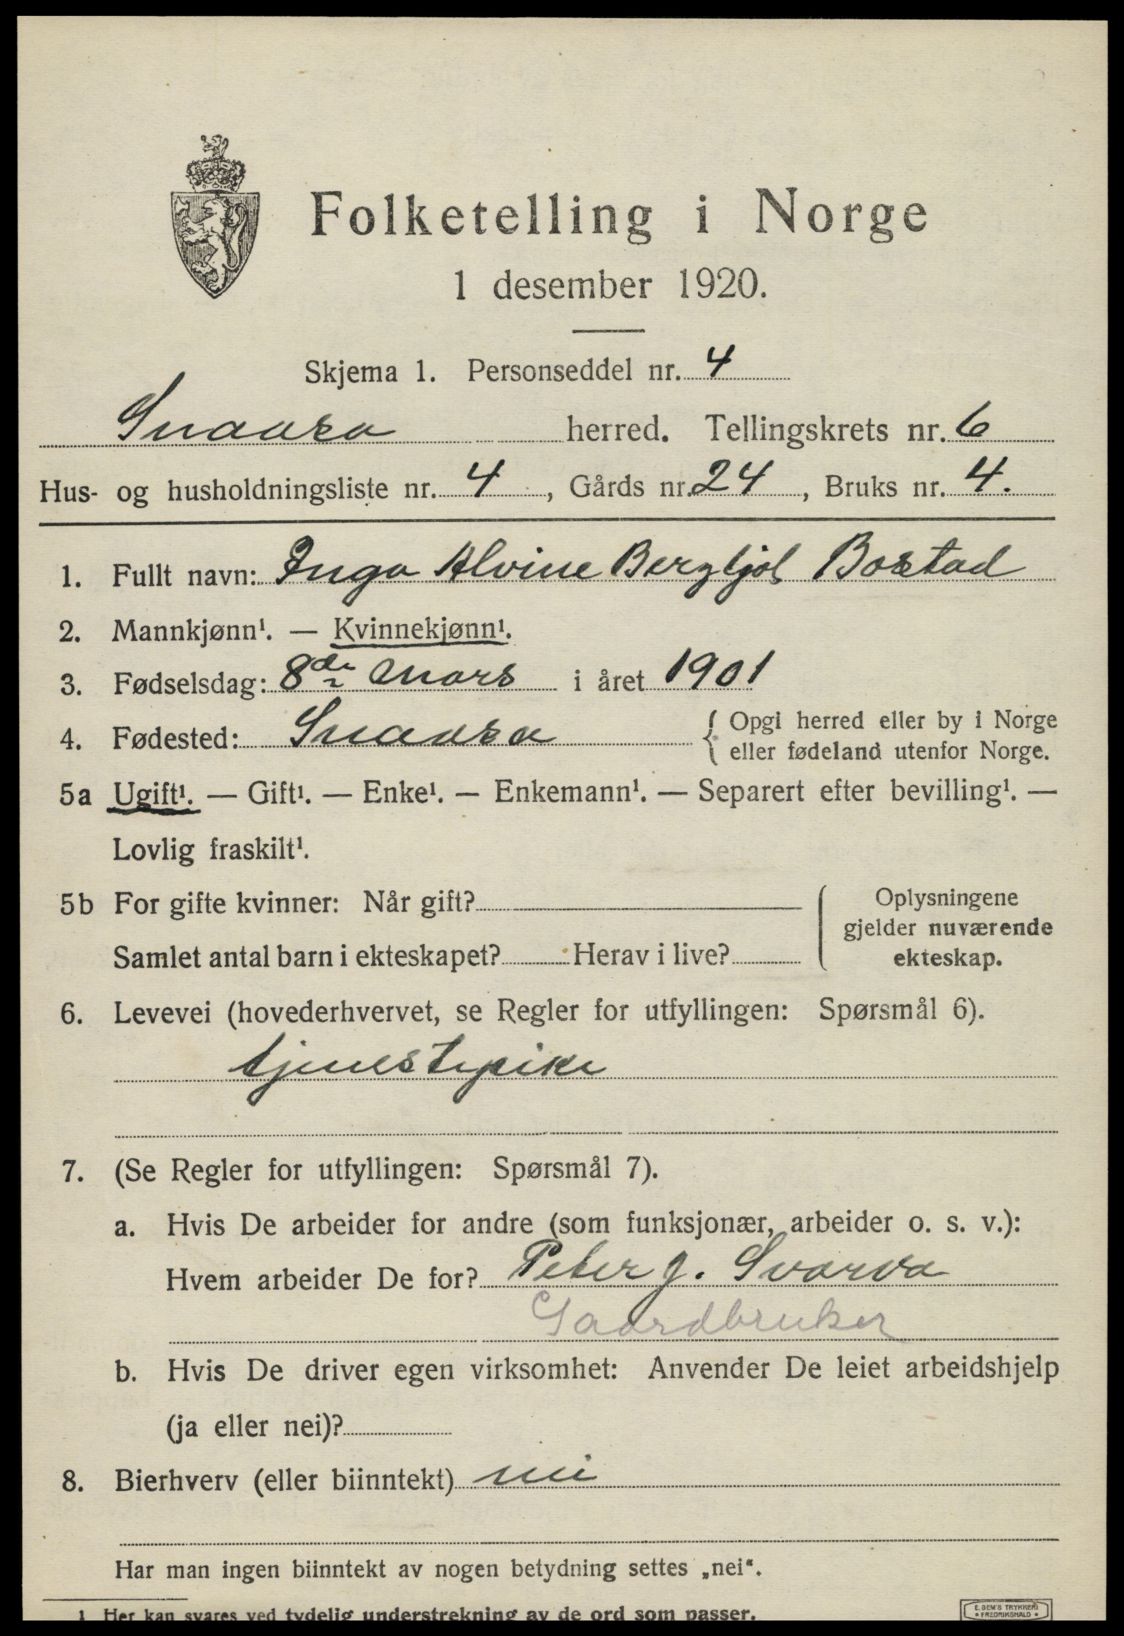 Folketelling i Norge
1 desember 1920.
Skjema 1. Personseddel nr. 4
Snaasa herred. Tellingskrets nr. 6
Hus- og husholdningsliste nr. 4, Gårds nr. 24, Bruks nr. 4.
1. Fullt navn: Inga Alvine Bergljot Bostad
2. Mannkjønn¹. — Kvinnekjønn¹.
3. Fødselsdag: 8de Mars i året 1901
4. Fødested: Snaasa { Opgi herred eller by i Norge
eller fødeland utenfor Norge.
5a Ugift¹. — Gift¹. — Enke¹. — Enkemann¹. — Separert efter bevilling¹. —
Lovlig fraskilt¹.
5b For gifte kvinner: Når gift?
Samlet antal barn i ekteskapet? Herav i live?
Oplysningene
gjelder nuværende
ekteskap.
6. Levevei (hovederhvervet, se Regler for utfyllingen: Spørsmål 6).
tjenestepike
7. (Se Regler for utfyllingen: Spørsmål 7).
a. Hvis De arbeider for andre (som funksjonær, arbeider o. s. v.):
Hvem arbeider De for? Peter J. Svarva
Gaardbruker
b. Hvis De driver egen virksomhet: Anvender De leiet arbeidshjelp
(ja eller nei)?
8. Bierhverv (eller biinntekt) nei
Har man ingen biinntekt av nogen betydning settes „nei“.
1 Her kan svares ved tydelig understrekning av de ord som passer.
E. SEM'S TRYKKERI
• FREDRIKSHALD •